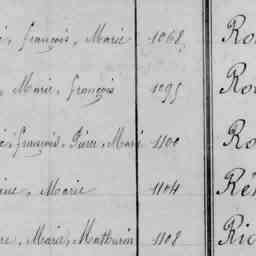 François, Marie 1068 Ro
, Marie, François 1095 Ro
François, Pierre, Marie 1100 Ro
, Marie 1104 Ré
, Marie, Mathurin 1108 Ri